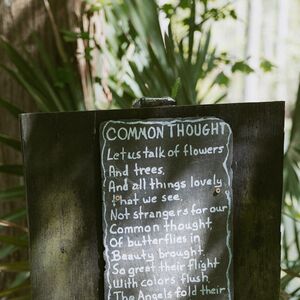 COMMON THOUGHT
Let us talk of flowers
And trees,
And all things lovely
that we see,
Not strangers for our
Common thought,
Of butterflies in
Beauty brought,
So great their flight
With colors flush
The Angels told their